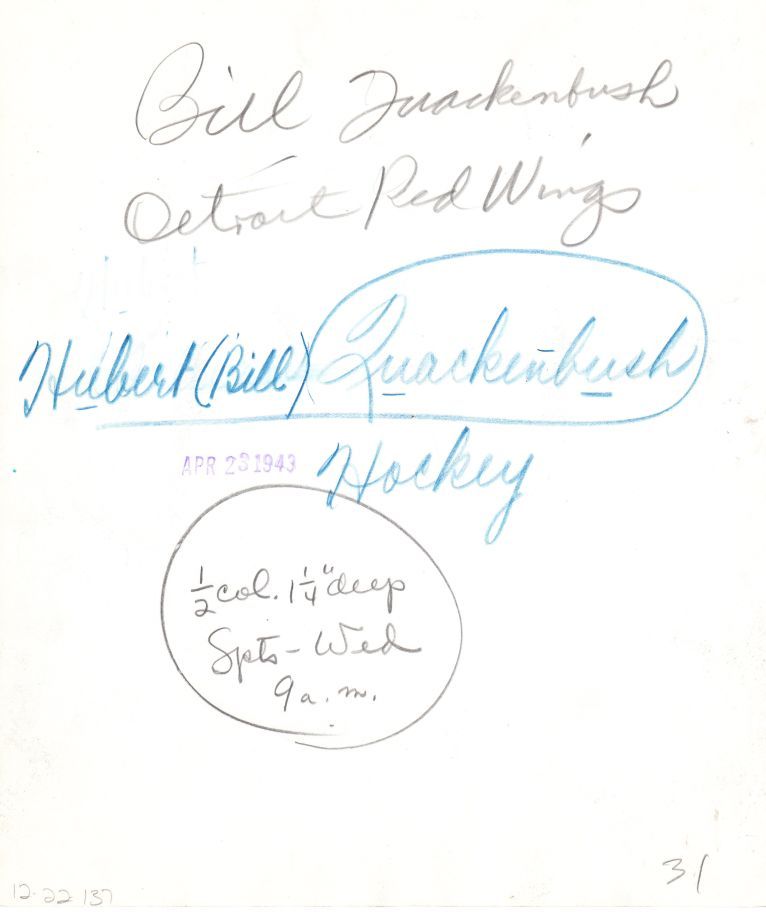 Bill Quackenbush
Detroit Red Wings
Hubert (Bill) Quackenbush
APR 28 1943
Hockey
1/2 col. 1 1/4" deep
Spts - Wed
9 a.m.
31
12-22-137